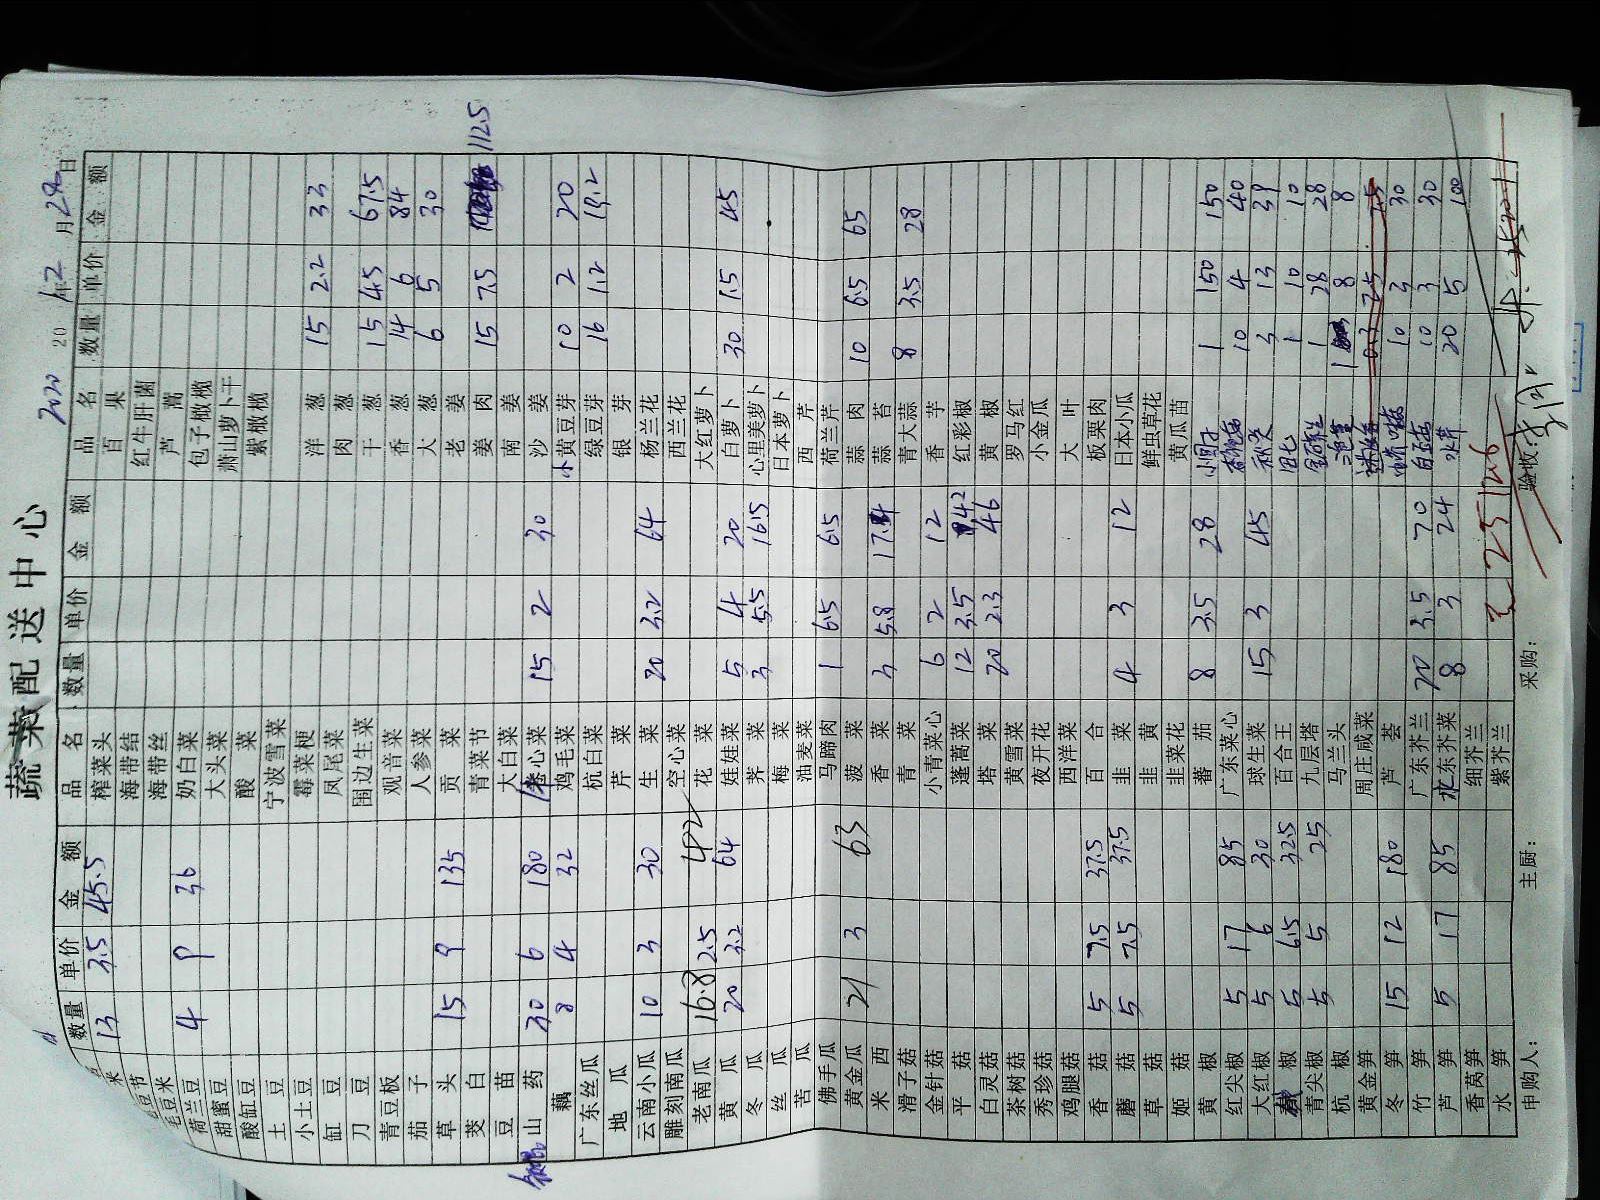 蔬菜配送中心
2020 年12月28日
品名 数量 单价 金额
13 3.5 45.5
毛豆节
毛豆米
荷兰豆 4 9 36
甜蜜豆
酸缸豆
土豆
小土豆
缸豆
刀豆
青豆板
茄子
草头 15 9 135
茭白
豆苗
山药 30 6 180
藕 8 4 32
广东丝瓜
地瓜
云南小瓜 10 3 30
雕刻南瓜
老南瓜 16.8 2.5 42
黄瓜 20 3.2 64
冬瓜
丝瓜
苦瓜
佛手瓜
黄金瓜 21 3 63
米西
滑子菇
金针菇
平菇
白灵菇
茶树菇
秀珍菇
鸡腿菇
香菇 5 7.5 37.5
蘑菇 5 7.5 37.5
草菇
姬菇
黄椒
红尖椒 5 17 85
大红椒 5 6 30
椒 5 6.5 32.5
青尖椒 5 5 25
杭椒
黄金笋
冬笋 15 12 180
竹笋
芦笋 5 17 85
香莴笋
水笋
品名 数量 单价 金额
榨菜头
海带结
海带丝
奶白菜
大头菜
酸菜
宁波雪菜
霉菜梗
凤尾菜
围边生菜
观音菜
人参菜
贡菜
青菜节
大白菜
卷心菜 15 2 30
鸡毛菜
杭白菜
芹菜
生菜 20 3.2 64
空心菜
花菜
娃娃菜 5 4 20
荠菜 3 5.5 16.5
梅菜
油麦菜
马蹄肉 1 6.5 6.5
菠菜
香菜 3 5.8 17.4
青菜
小青菜心 6 2 12
蓬蒿菜 12 3.5 42
塔菜 20 2.3 46
黄雪菜
夜开花
西洋菜
百合
韭菜 4 3 12
韭黄
韭菜花
蕃茄 8 3.5 28
广东菜心
球生菜 15 3 45
百合王
九层塔
马兰头
周庄咸菜
芦荟
广东芥兰 20 3.5 70
水东芥菜 8 3 24
细芥兰
紫芥兰
品名 数量 单价 金额
百果
红牛肝菌
芦蒿
包子橄榄
萧山萝卜干
紫橄榄
洋葱 15 2.2 33
肉葱
干葱 15 4.5 67.5
香葱 14 6 84
大葱 6 5 30
老姜
姜肉 15 7.5 112.5
南姜
沙姜
小黄豆芽 10 2 20
绿豆芽 16 1.2 19.2
银芽
杨兰花
西兰花
大红萝卜
白萝卜 30 1.5 45
心里美萝卜
日本萝卜
西芹
荷兰芹
蒜肉 10 6.5 65
蒜苔
青大蒜 8 3.5 28
香芋
红彩椒
黄椒
罗马红
小金瓜
大叶
板栗肉
日本小瓜
鲜虫草花
黄瓜苗
1 150 150
10 4 40
秋葵 3 13 39
1 10 10
1 28 28
1 8 8
0.3 25 7.5
10 3 30
10 3 30
水芹 20 5 100
2512.6
申购人： 主厨： 采购： 验收：